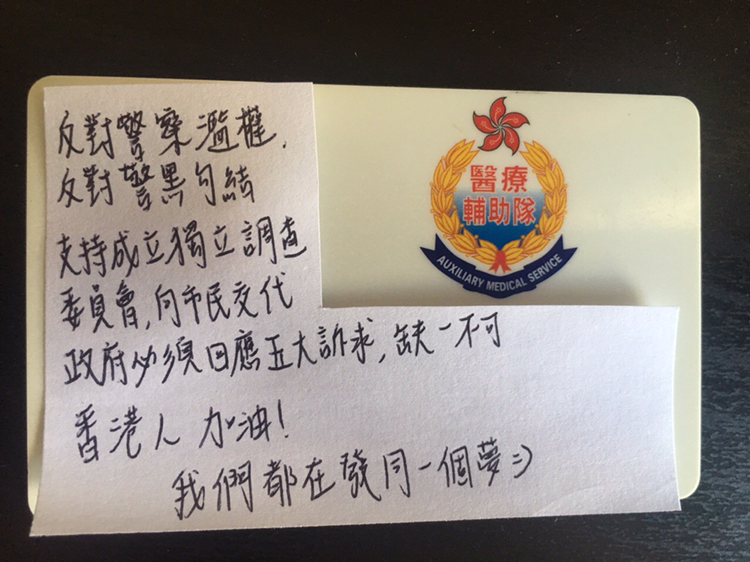 反對警察濫權,
反對警黑勾結
支持成立獨立調查
委員會,向市民交代
政府必須回應五大訴求,缺一不可
香港人 加油!
我們都在發同一個夢=)
醫療
輔助隊
AUXILIARY MEDICAL SERVICE